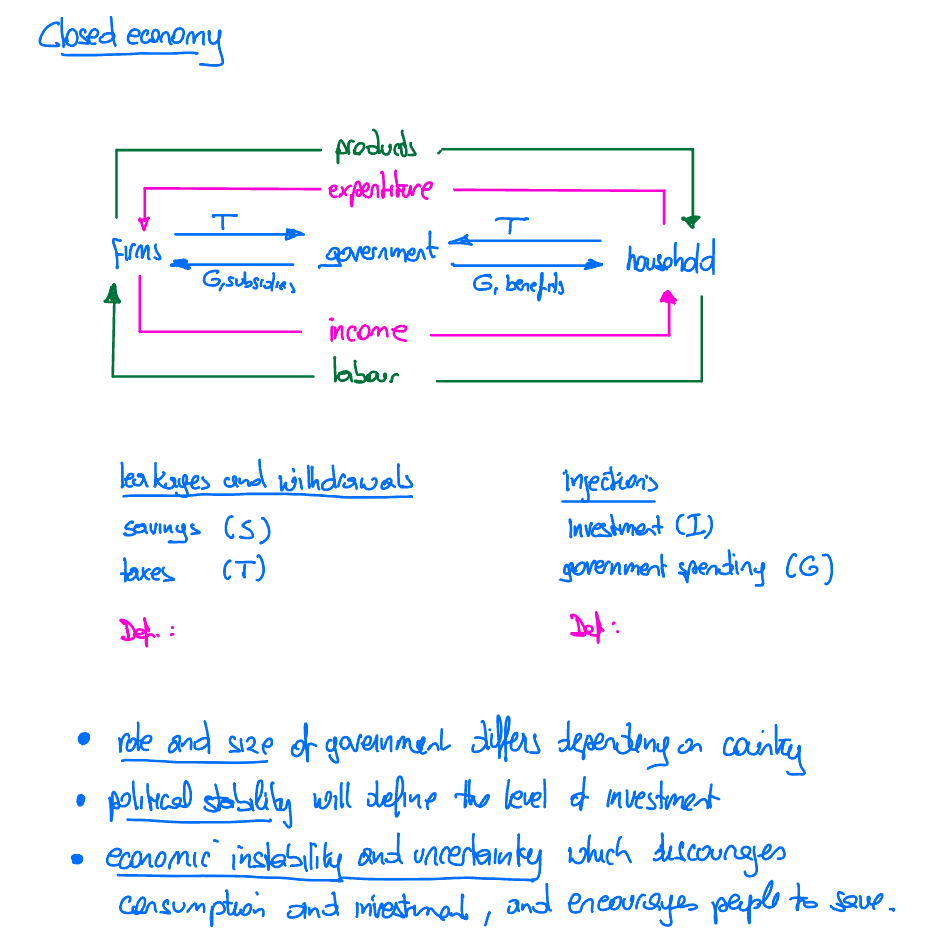 Closed economy
products
expentiture
T
T
Firms
government
household
G, subsidies
G, benefits
income
labour
leakages and withdrawals
Injections
savings (S)
Investment (I)
taxes (T)
government spending (G)
Def.:
Def:
• role and size of government differs depending on country
• political stability will define the level of investment
• economic instability and uncertainty which discourages
consumption and investment, and encourages people to save.